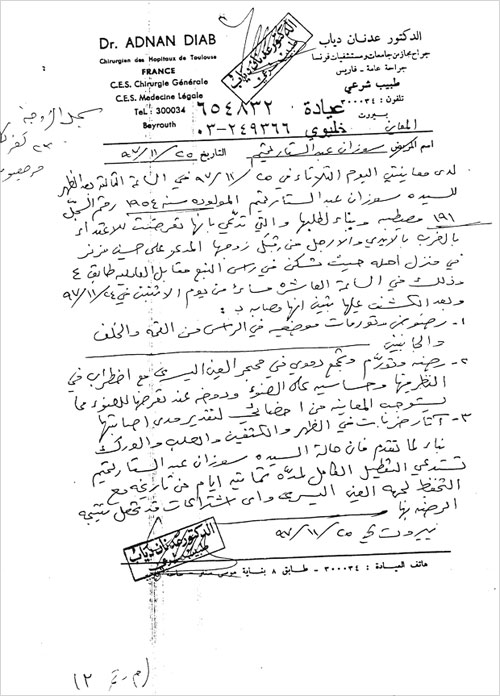 Dr. ADNAN DIAB
Chirurgien des Hopitaux de Toulouse
FRANCE
C.E.S. Chirurgie Générale
C.E.S. Medecine Légale
TeL: 300034
Beyrouth
الدكتور عدنان دياب
طبيب شرعي
الدكتور عدنان دياب
جراح مجاز من جامعات ومستشفيات فرنسا
جراحة عامة - فاريس
طبيب شرعي
تلفون : ٣٠٠٠٣٤
بيروت
عيادة ٦٥٤٨٣٢
خليوي ٠٣-٢٤٩٣٦٦
سجل الزوجة
٢٣
اسم المريض سوزان عبد الستار تميم التاريخ ٩٧/١١/٢٥
لدى معاينتي اليوم الثلاثاء في ٩٧/١١/٢٥ في الساعة الثالثة بعد الظهر
للسيده سوزان عبد الستار تميم المولوده سنة ١٩٥٤ رقم السجل
١٩١ مصيطبه وبناء لطلبها والتي تدعي بانها تعرضت للاعتداء
بالضرب بالايدي والارجل من قبل زوجها المدعو علي حسين مزنر
في منزل اهله حيث تسكن في راس النبع مقابل العامليه طابق ٤
وذلك في الساعة العاشره مساءً من يوم الاثنين في ٩٧/١١/٢٤
وبعد الكشف عليها تبين انها مصابه ب :
١- رضوض وتورمات موضعيه في الراس من القمه والخلف
والجانبين
٢- رضه وتورم وتجمع دموي في محجر العين اليسرى مع اضطراب في
النظر منها وحساسيه على الضوء ودوخه عند تعرضها للضوء مما
يستوجب المعاينه من اخصائي لتقدير مدى اصابتها
٣- آثار ضربات في الظهر والكتفين والصلب والورك
بناء لما تقدم فان حالة السيده سوزان عبد الستار تميم
تستدعي التعطيل الكامل لمدة ثمانية ايام من تاريخه مع
التحفظ لجهة العين اليسرى واي اشتراكات قد تحصل نتيجه
الرضه بها
بيروت في ٩٧/١١/٢٥
الدكتور عدنان دياب
طبيب شرعي
هاتف العيادة : ٣٠٠٠٣٤ - طابق ٨ بناية
(م رقم ٢)